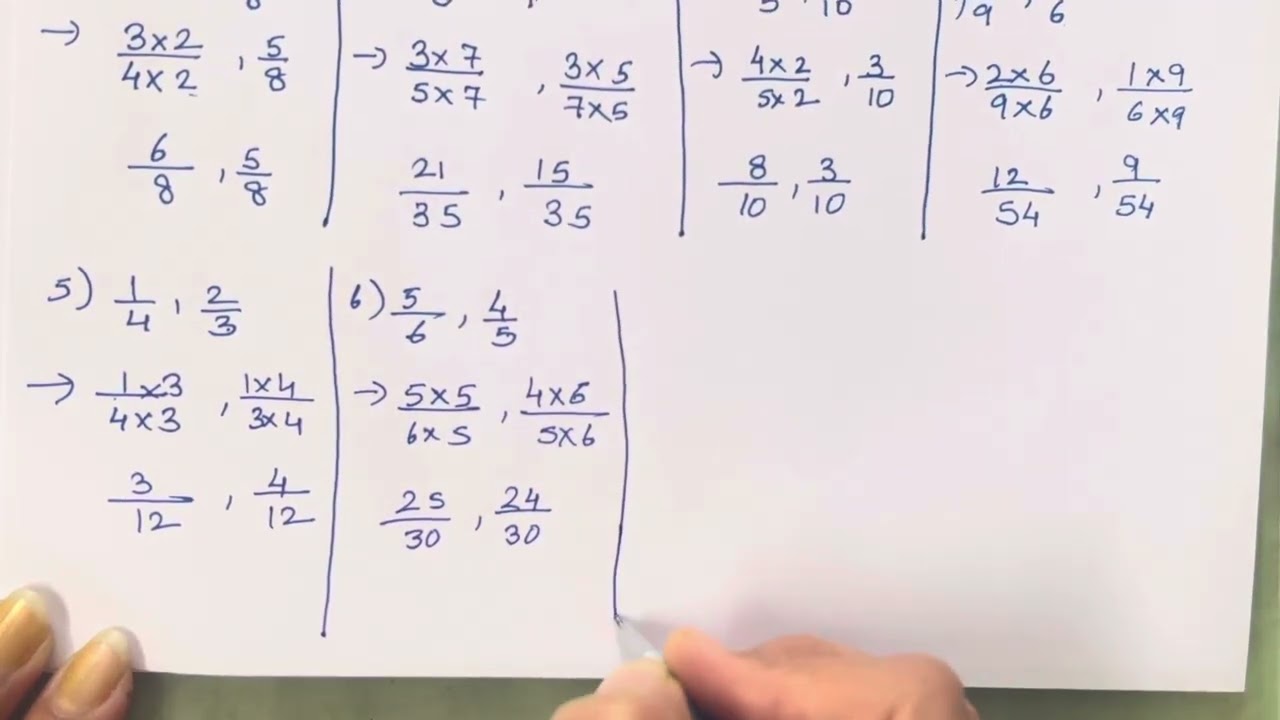 5 , 10
, 9 , 6
→ 3×2/4×2 , 5/8
6/8 , 5/8
→ 3×7/5×7 , 3×5/7×5
21/35 , 15/35
→ 4×2/5×2 , 3/10
8/10 , 3/10
→ 2×6/9×6 , 1×9/6×9
12/54 , 9/54
5) 1/4 , 2/3
→ 1×3/4×3 , 1×4/3×4
3/12 , 4/12
6) 5/6 , 4/5
→ 5×5/6×5 , 4×6/5×6
25/30 , 24/30